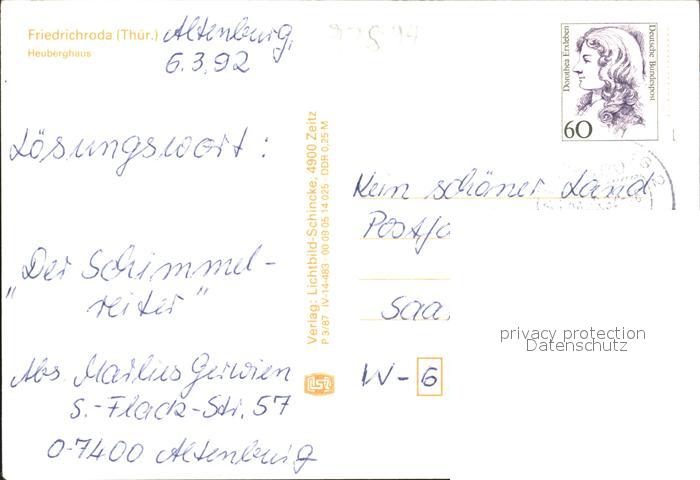 Friedrichroda (Thür.)
Heuberghaus
Altenburg,
6.3.92
Lösungswort:
"Der Schimmel-
reiter"
Abs. Marlies Gerwien
S.-Flack-Str. 57
O-7400 Altenburg
Verlag: Lichtbild-Schincke, 4900 Zeitz
P 3/87 IV-14-483 00 09 05 14 025 DDR 0,25 M
Dorothea Erxleben
Deutsche Bundespost
60
Kein schöner Land
Postfa
Saa
W-6
privacy protection
Datenschutz